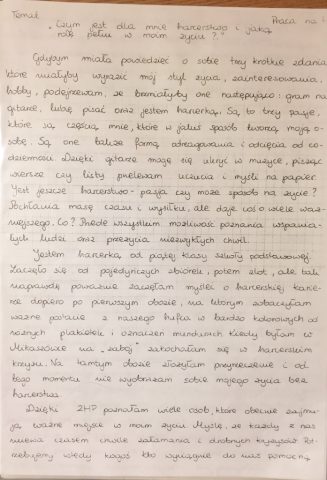 Temat:
Praca na 1
"Czym jest dla mnie harcerstwo i jaką
rolę pełni w moim życiu?."
Gdybym miała powiedzieć o sobie trzy krótkie zdania
które miałyby wyrazić mój styl życia, zainteresowania,
hobby, podejrzewam, że brzmiałyby one następująco: gram na
gitarze, lubię pisać oraz jestem harcerką. Są, to trzy pasje,
które są częścią mnie, które w jakiś sposób tworzą moją o-
sobę. Są one także formą odreagowania i odcięcia od co-
dzienności. Dzięki gitarze mogę się ukryć w muzyce, pisząc
wiersze czy listy przelewam uczucia i myśli na papier.
Tyś jeszcze harcerstwo - pasja czy może sposób na życie?
Pochłania masę czasu i wysiłku, ale daje coś o wiele waż-
niejszego. Co? Przede wszystkim możliwość poznania wspania-
łych ludzi oraz przeżycia niezwykłych chwil.
Jestem harcerką od piątej klasy szkoły podstawowej.
Zaczęło się od pojedynczych zbiórek, potem zlot, ale tak
naprawdę poważnie zaczęłam myśleć o harcerskiej karie-
rze dopiero po pierwszym obozie, na którym zobaczyłam
ważne postacie z naszego hufca w bardzo kolorowych od
różnych plakietek i oznaczeń mundurach. Kiedy byłam w
Mikaszówce na "zabój" zakochałam się w harcerskim
krzyżu. Na tamtym obozie złożyłam przyrzeczenie i od
tego momentu nie wyobrażam sobie mojego życia bez
harcerstwa.
Dzięki ZHP poznałam wiele osób, które obecnie zajmu-
ją, ważne miejsce w moim życiu. Myślę, że każdy z nas
miewa czasem chwile załamania i drobnych kryzysów. Pot-
rzebujemy wtedy kogoś kto wyciągnie do nas pomocną